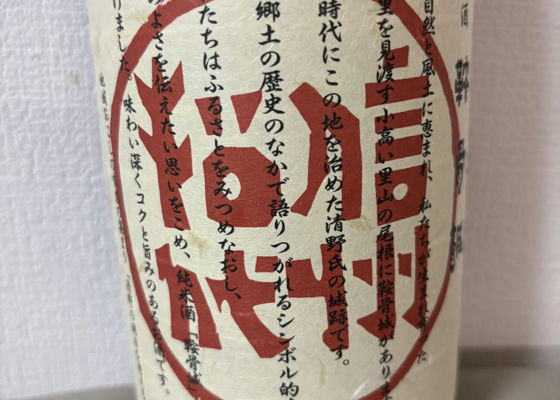 酒
自然と風土に恵まれ、私たちが生まれ育った
里を見渡す小高い里山の尾根に鞍骨城がありま
時代にこの地を治めた清野氏の城跡です。
郷土の歴史のなかで語りつがれるシンボル的
たちはふるさとをみつめなおし、
よさを伝えたい思いをこめ、純米酒「鞍骨城
りました。味わい深くコクと旨みのあるお酒です。
信州
松代